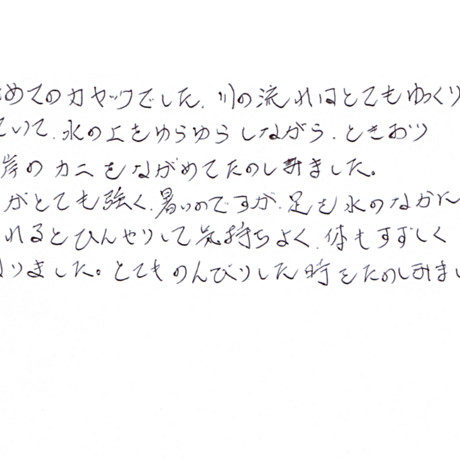 めてのカヤックでした。川の流れはとてもゆっくり
ていて、水の上をゆらゆらしながら、ときおり
岸のカニをながめてたのしみました。
がとても強く、暑いのですが、足を水のなかに
れるとひんやりして気持ちよく、体もすずしく
りました。とてものんびりした時をたのしみまし